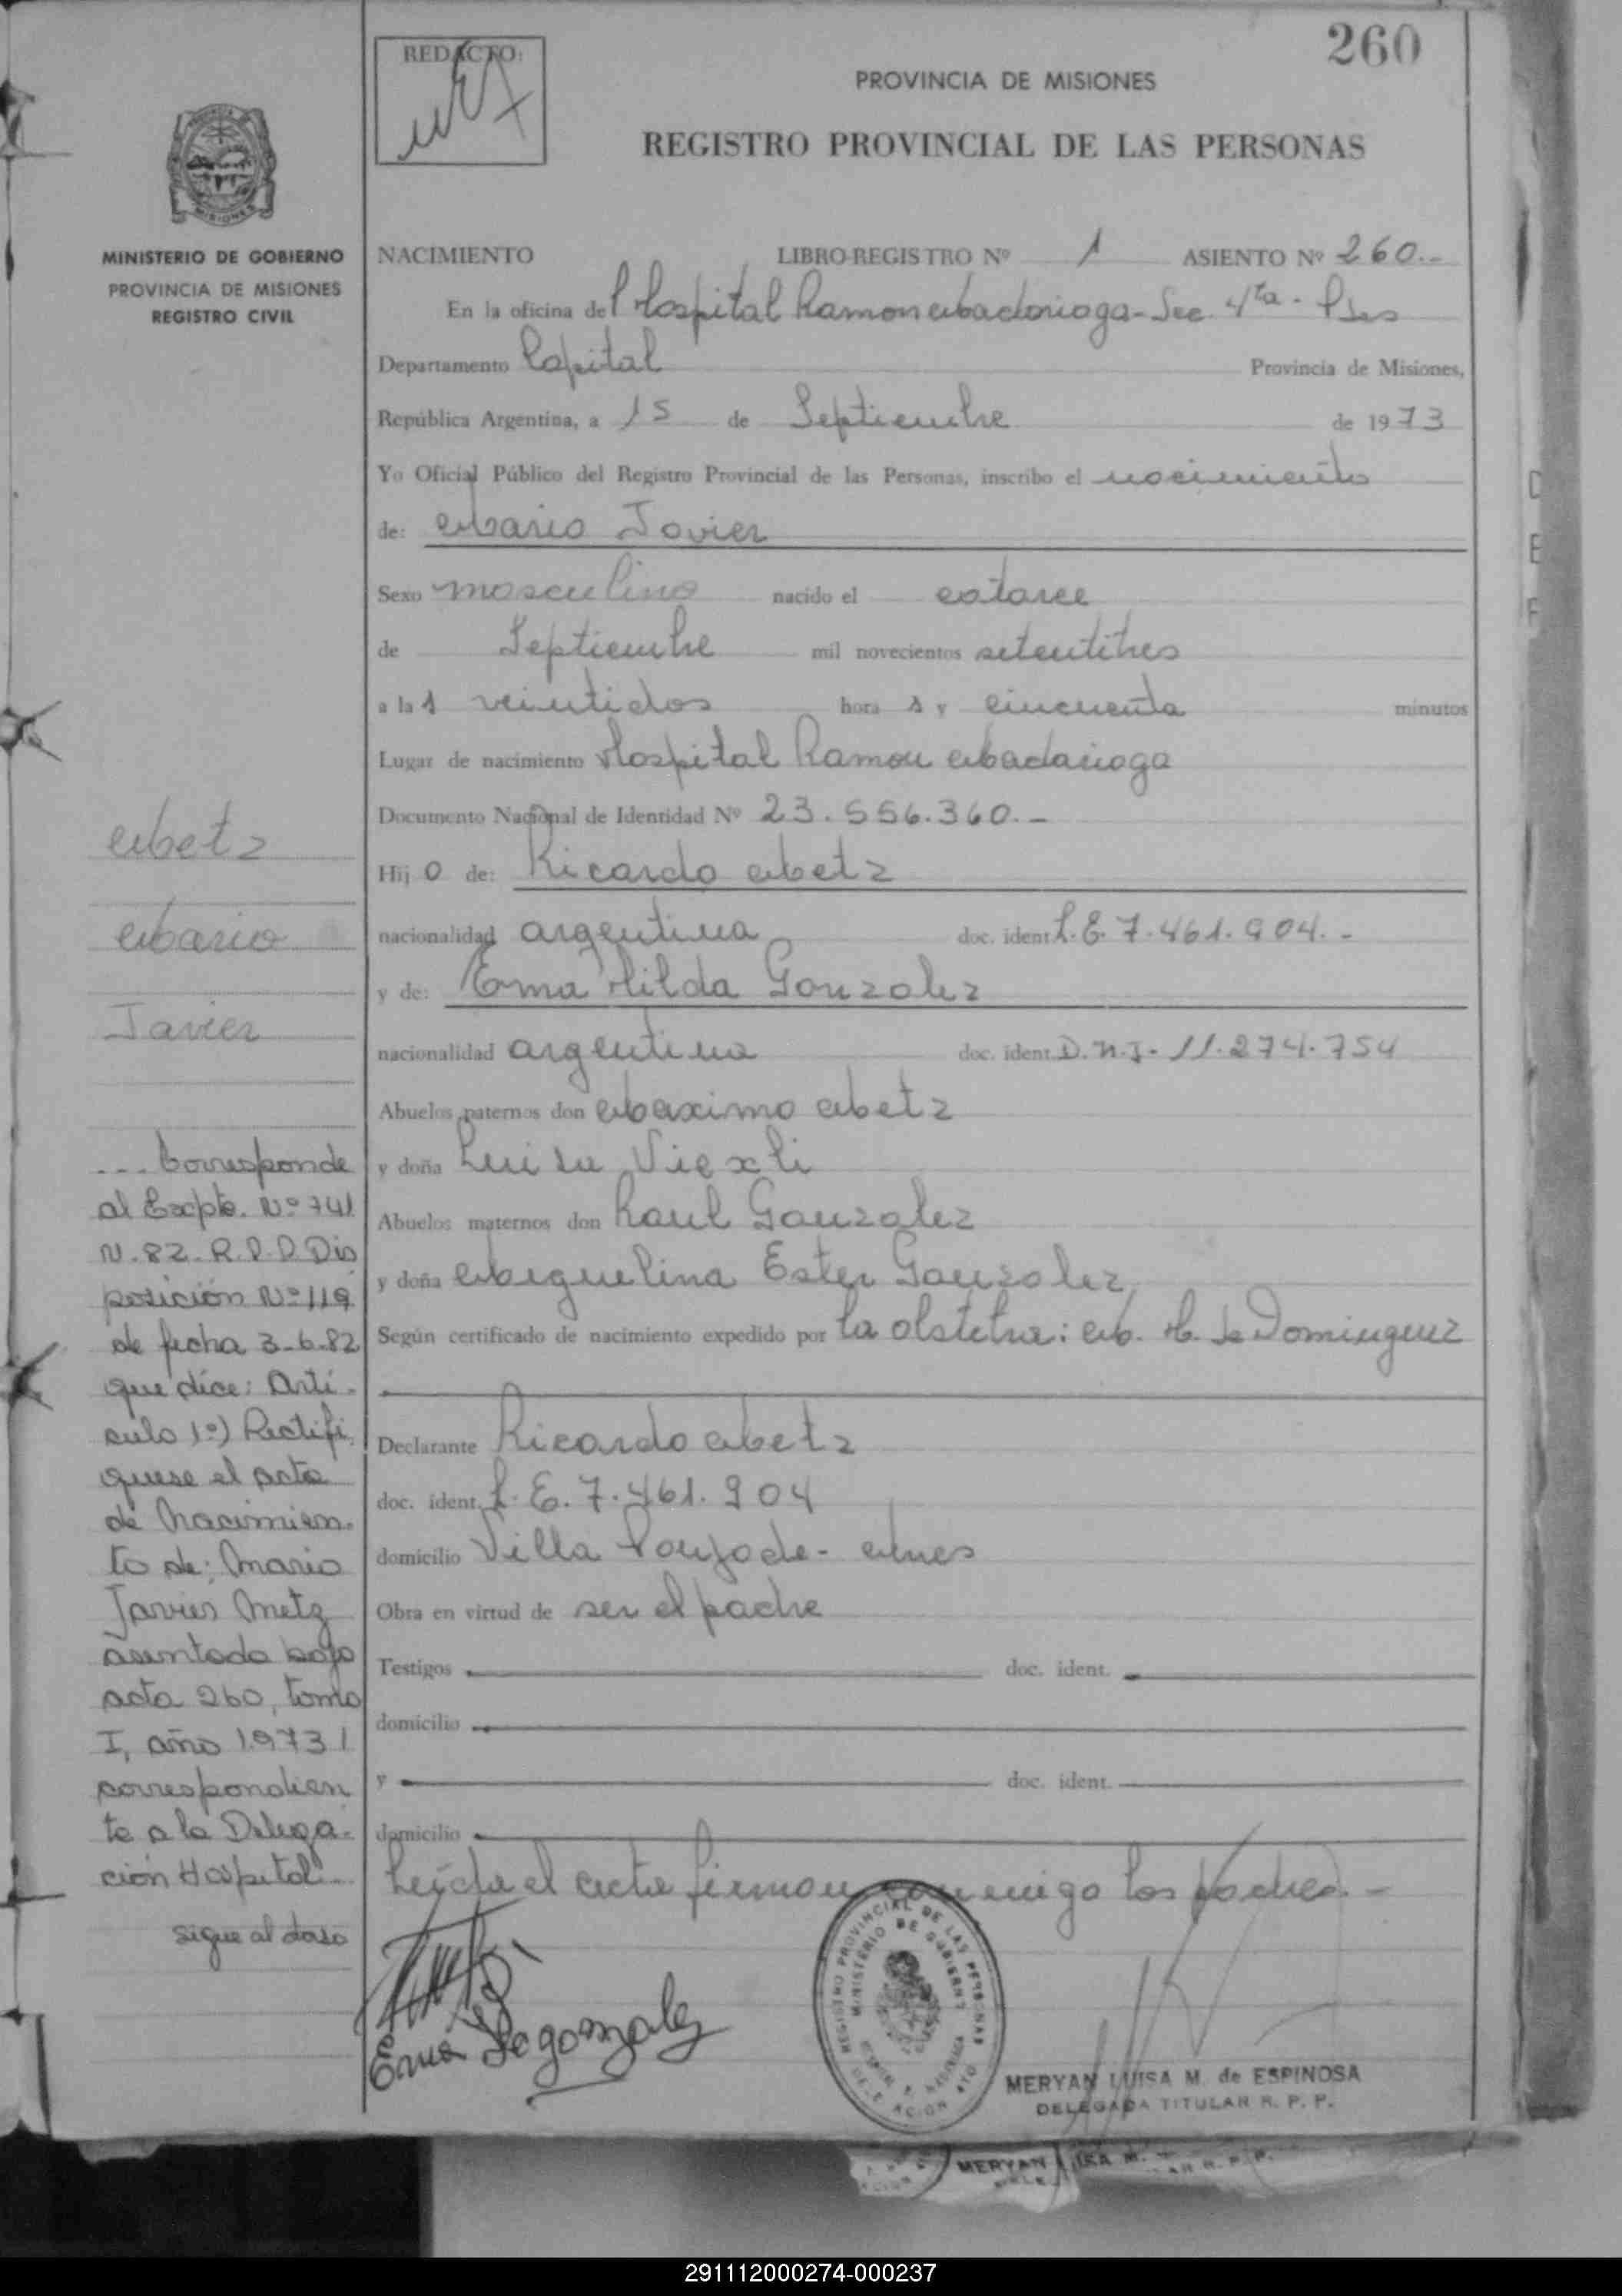 260
REDACTO:
PROVINCIA DE MISIONES
REGISTRO PROVINCIAL DE LAS PERSONAS
MISIONES
MINISTERIO DE GOBIERNO
PROVINCIA DE MISIONES
REGISTRO CIVIL
NACIMIENTO LIBRO-REGISTRO Nº 1 ASIENTO Nº 260.-
En la oficina del Hospital Ramon Madariaga - Sec. 4ta - Pdas
Departamento Capital Provincia de Misiones,
República Argentina, a 15 de Septiembre de 1973
Yo Oficial Público del Registro Provincial de las Personas, inscribo el nacimiento
de: Mario Javier
Sexo masculino nacido el catorce
de Septiembre mil novecientos setentitres
a las veintidos horas y cincuenta minutos
Lugar de nacimiento Hospital Ramon Madariaga
Documento Nacional de Identidad Nº 23.556.360.-
Hijo de: Ricardo Metz
nacionalidad argentina doc. ident. L.E. 7.461.904.-
y de: Ema Hilda Gonzalez
nacionalidad argentina doc. ident. D.N.I. 11.274.754
Abuelos paternos don Maximo Metz
y doña Luisa
Abuelos maternos don Raul Gonzalez
y doña Miguelina Ester Gonzalez
Según certificado de nacimiento expedido por la obstetra: M. H. de Dominguez
Declarante Ricardo Metz
doc. ident. L.E. 7.461.904
domicilio Villa
Obra en virtud de ser el padre
Testigos doc. ident.
domicilio
y doc. ident.
domicilio
Leida el acta firman conmigo los padres.-
Metz
Mario
Javier
... Corresponde
al Expte. Nº 741
N.82.R.P.P. Dis
posición Nº 119
de fecha 3-6-82
que dice: Arti-
culo 1º) Rectifi
quese el acta
de nacimien-
to de: Mario
Javier Metz
asentada bajo
acta 260, tomo
I, año 1973
correspondien
te a la Delega-
ción Hospital.
sigue al dorso
Ema H de gonzalez
REGISTRO PROVINCIAL DE LAS PERSONAS
MINISTERIO DE GOBIERNO
MERYAN LUISA M. de ESPINOSA
DELEGADA TITULAR R. P. P.
MERYAN
291112000274-000237